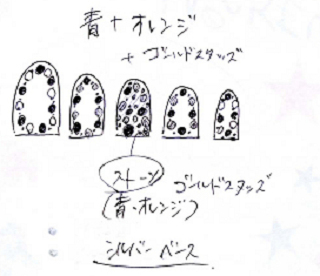 青+オレンジ
+ゴールドスタッズ
ストーン ゴールドスタッズ
(青・オレンジ)
シルバーベース